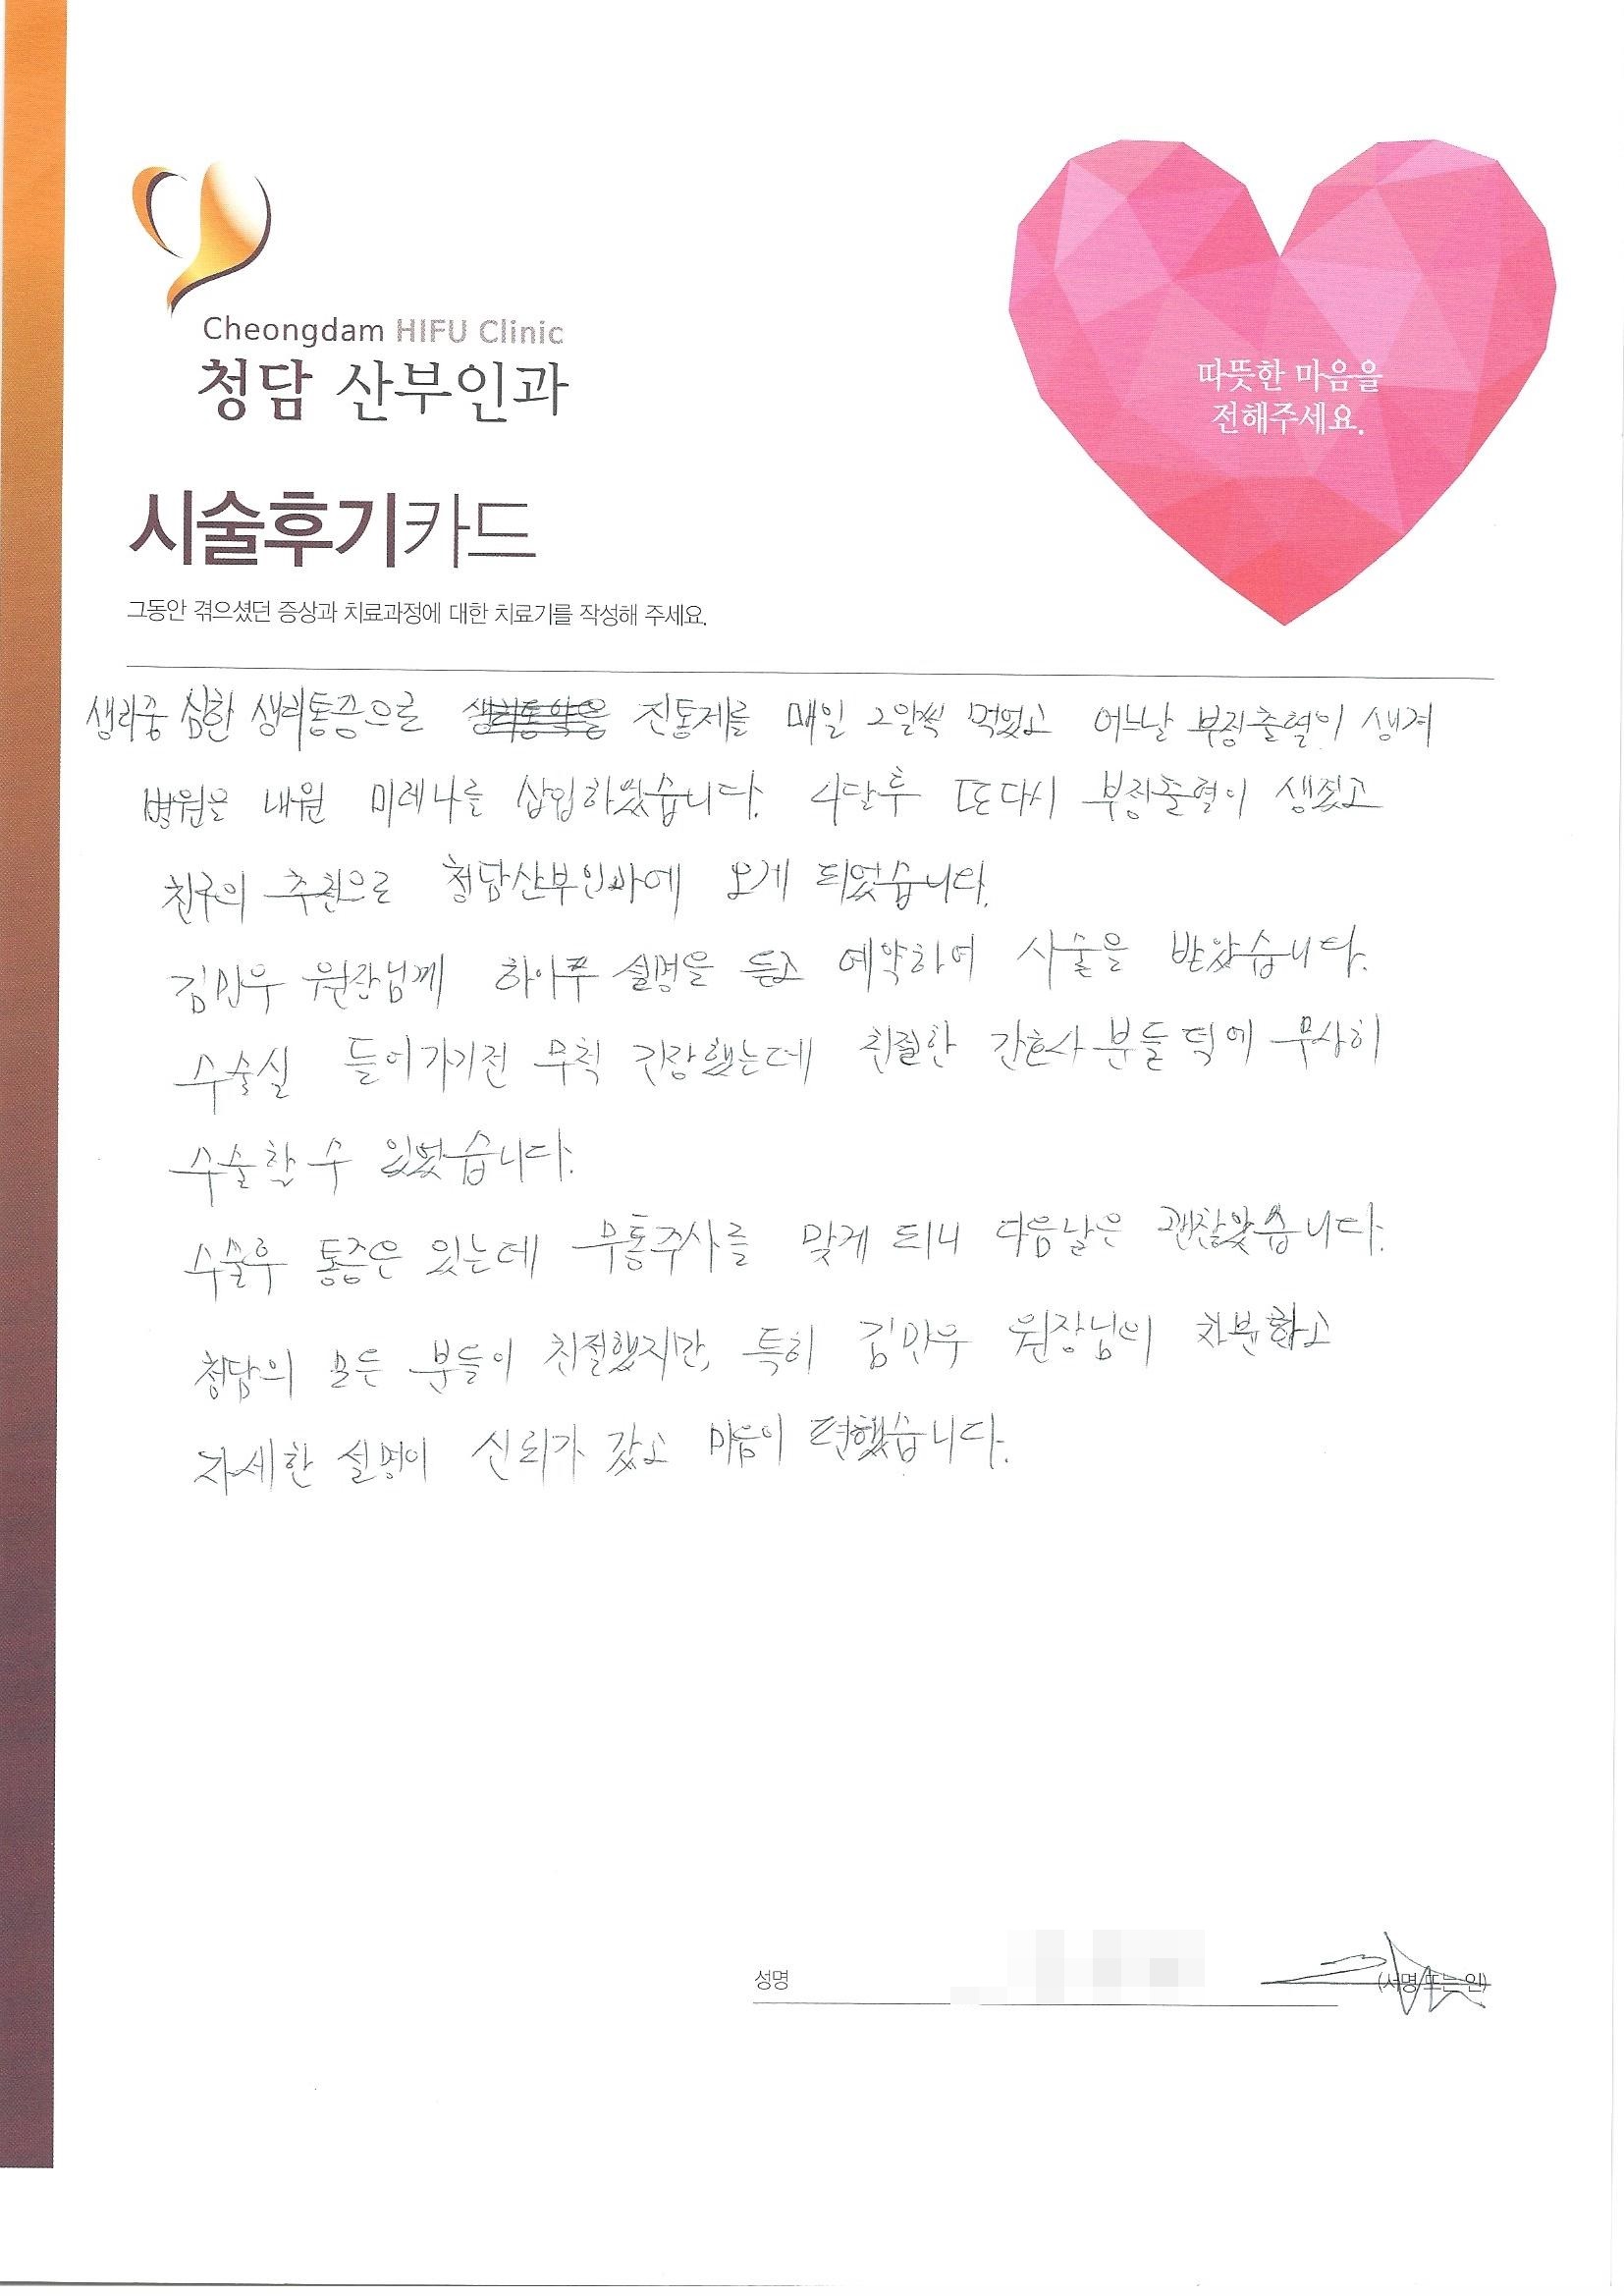 Cheongdam HIFU Clinic
청담 산부인과
따뜻한 마음을
전해주세요.
시술후기카드
그동안 겪으셨던 증상과 치료과정에 대한 치료기를 작성해 주세요.
생리중 심한 생리통증으로 생리통약을 진통제를 매일 2알씩 먹었고 어느날 부정출혈이 생겨
병원을 내원 미레나를 삽입하였습니다. 4달후 또다시 부정출혈이 생겼고
친구의 추천으로 청담산부인과에 오게 되었습니다.
김민우 원장님께 하이푸 설명을 듣고 예약하여 시술을 받았습니다.
수술실 들어가기전 무척 긴장했는데 친절한 간호사분들 덕에 무사히
수술할 수 있었습니다.
수술후 통증은 있는데 무통주사를 맞게 되니 다음날은 괜찮았습니다.
청담의 모든 분들이 친절했지만, 특히 김민우 원장님의 차분하고
자세한 설명이 신뢰가 갔고 마음이 편했습니다.
성명 (서명 또는 인)